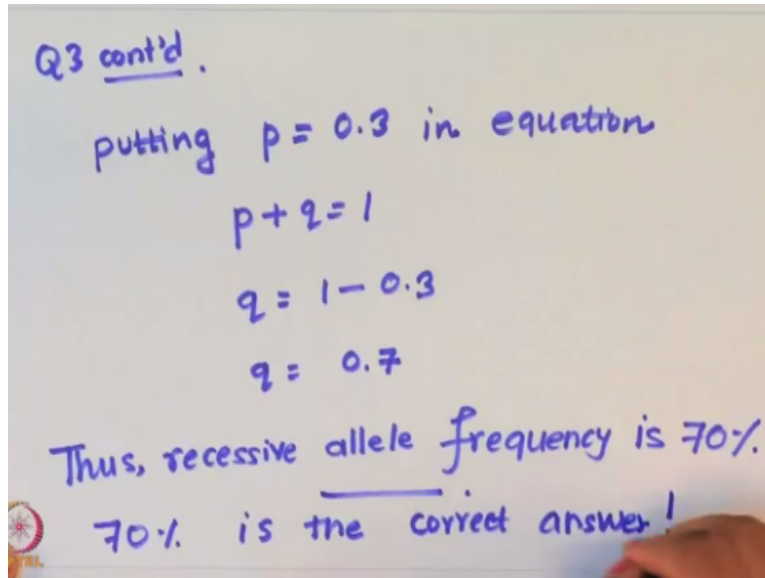 Q3 cont'd.
putting p = 0.3 in equation
p + q = 1
q = 1 - 0.3
q = 0.7
Thus, recessive allele frequency is 70%.
70% is the correct answer!